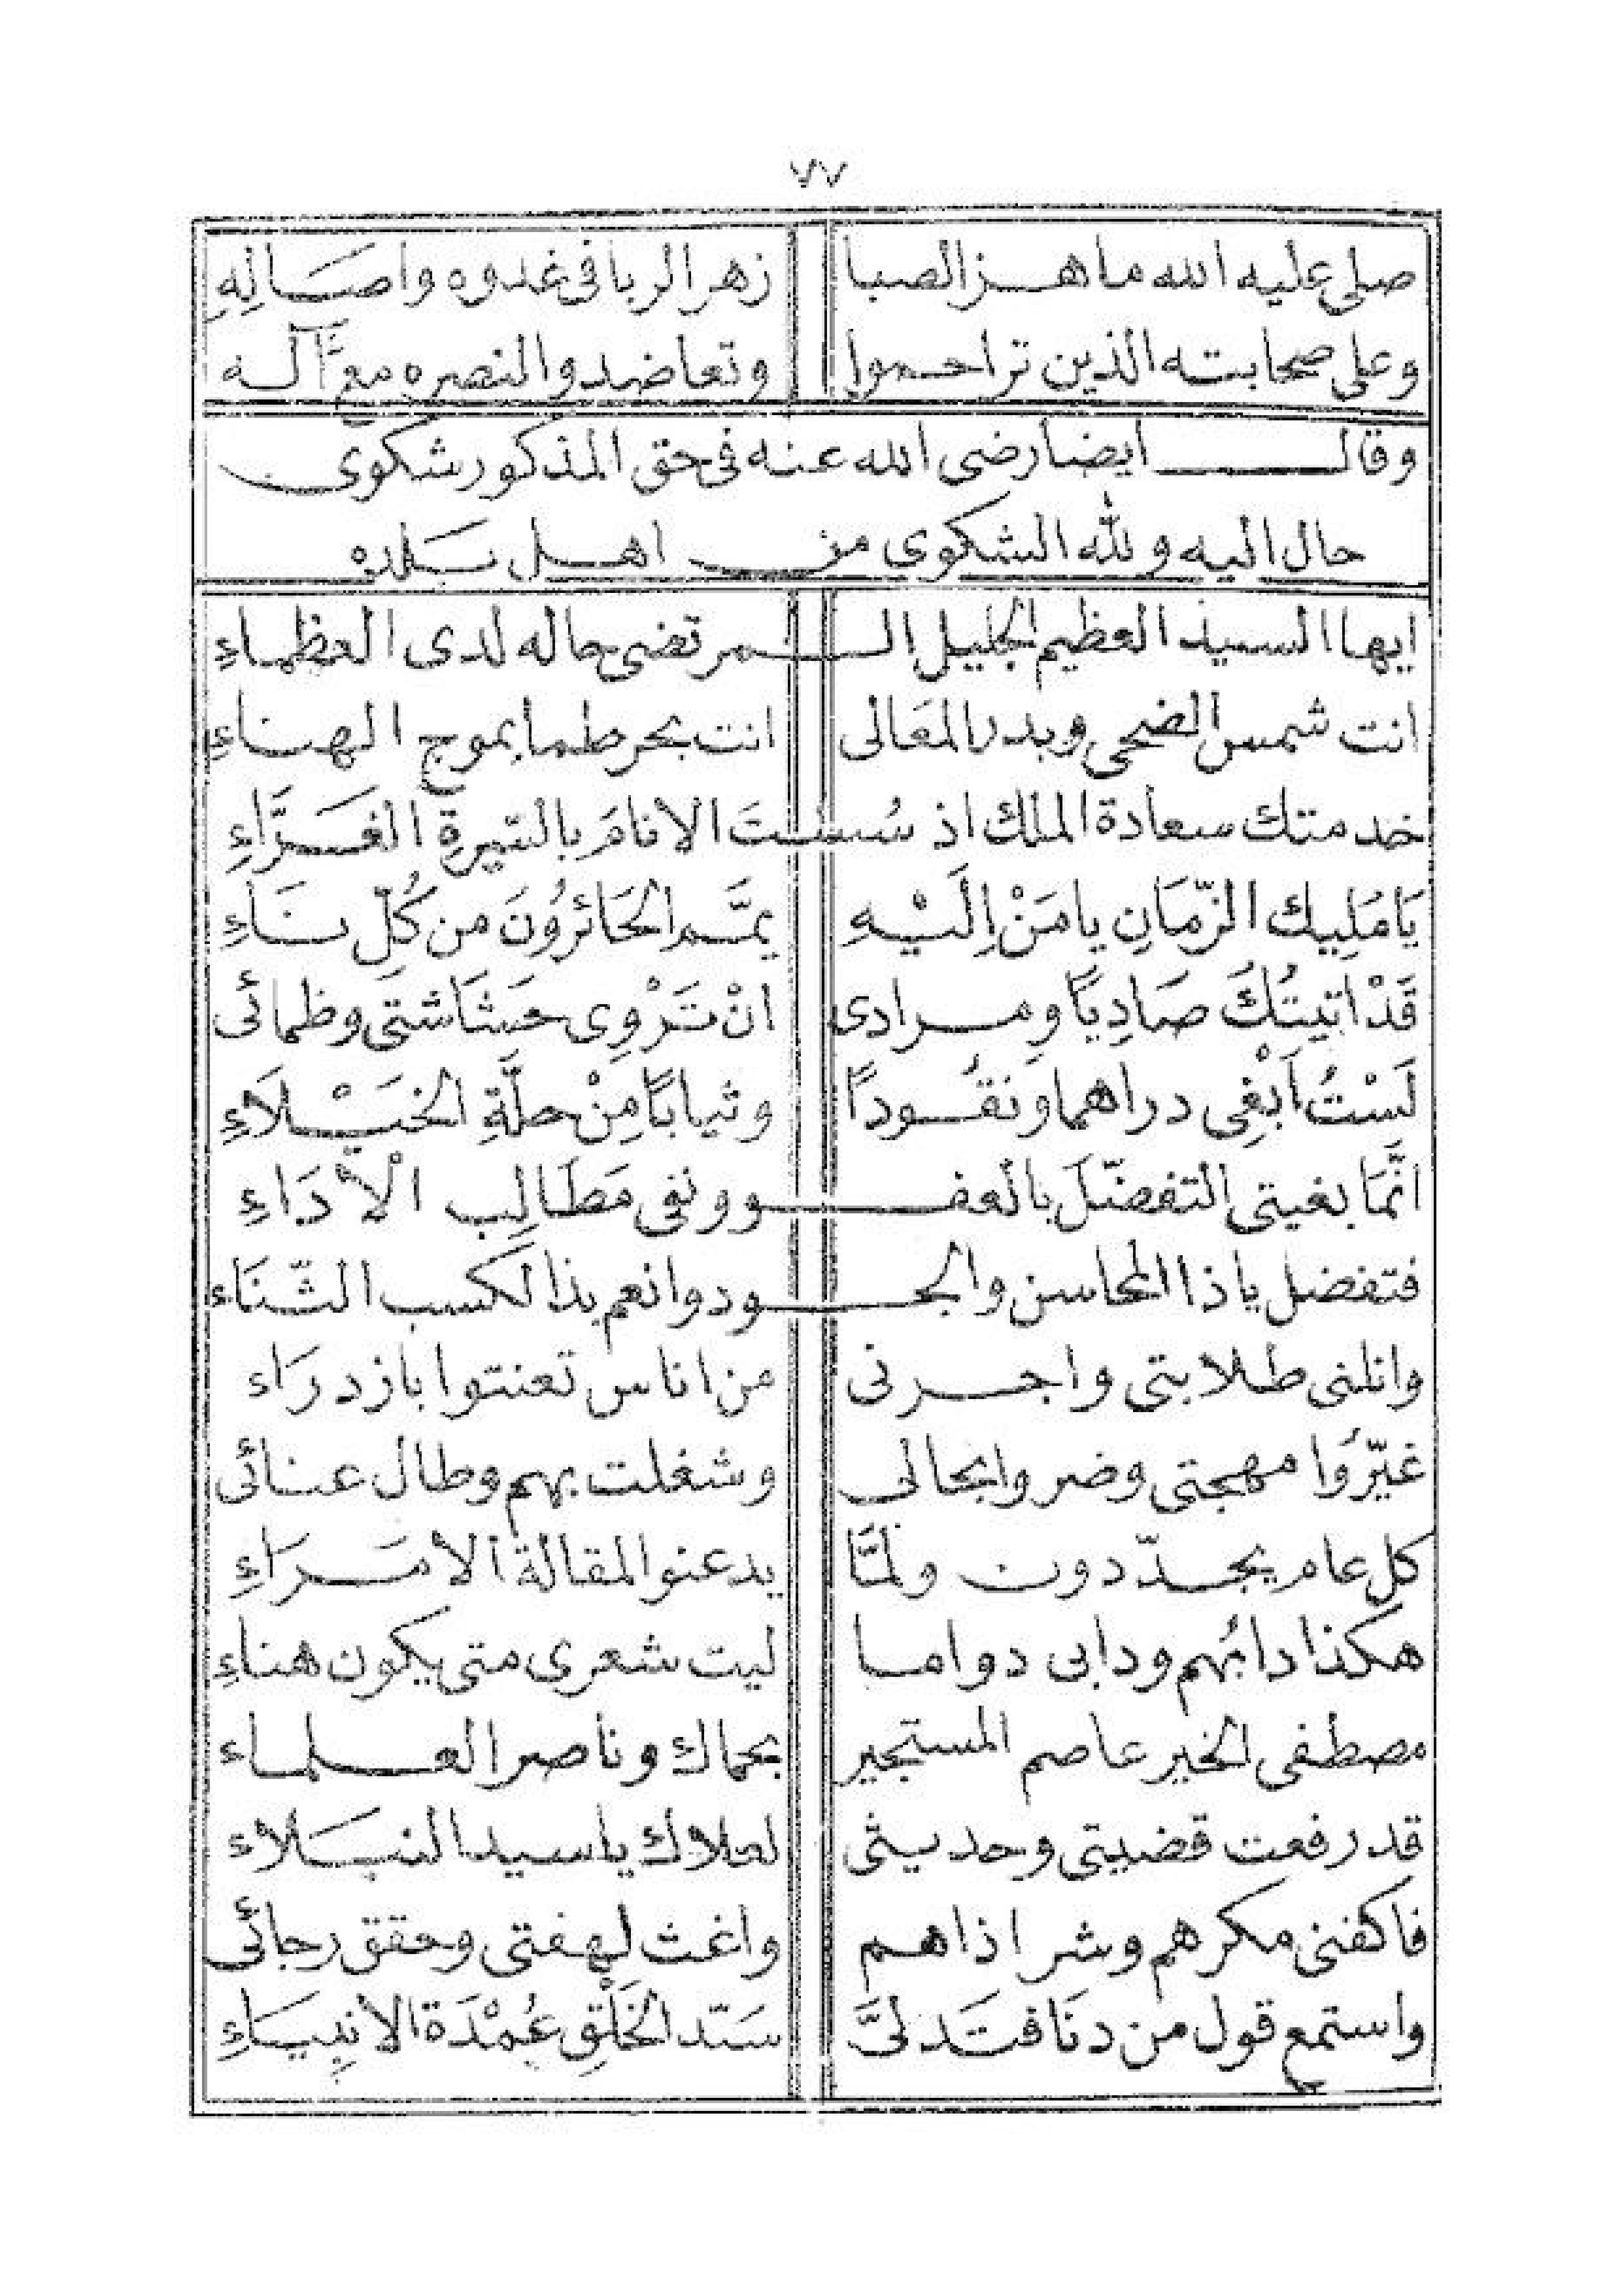 ٧٧
صلى عليه الله ما هز الصبا زهر الربا فى غدوه واصَالِهِ
وعلى صحابته الذين تراحموا وتعاضدوا لنصره مع آله
وقال ايضا رضى الله عنه فى حق المذكور شكوى
حال اليه ولله الشكوى من اهل بَلده
ايها السيد العظيم الجليل المرتضى حاله لدى العظماءِ
انت شمس الضحى وبدر المعَالى انت بحر طما بموج الهناءِ
خدمتك سعادة الملك اذ سُستَ الانامَ بالسّيرةِ الغَرَّاءِ
يَا مَلِيك الزّمَانِ يا مَنْ اِلَيْهِ يمَّم الحَائرُونَ من كُلِّ نَاءِ
قَدْ اتيتُكَ صَادِيًا ومرادى انْ تَرْوِى حَشَاشتى وظمائى
لَسْتُ اَبْغِى دراهما وَنقُودًا وثيابًا مِنْ حلَّةِ الخيَْلَاءِ
انَّمَا بغيتى التفضّلَ بالعفو ونفى مَطَالِب الْادَاءِ
فتفضل يا ذا المحاسن والجود وانعم بذا لكسب الثّنَاء
وانلنى طلابتى واجرنى من اناس تعنتوا بازدرَاء
غيّرُوا مهجتى وضروا بحالى وشغلت بهم وطال عنائى
كل عام يجدّدون ولمَّا يدعنوا لمقالة الامَرَاءِ
هكذا دابُهم ودابى دواما ليت شعرى متى يكون هناءِ
مصطفى الخير عاصم المستجير بحماك وناصر العلماء
قد رفعت قضيتى وحديثى لعلاك يا سيد النبَلاء
فاكفنى مكرهم وشر اذاهم واغث لهفتى وحقق رجائى
واستمع قول من دنَا فتَدلىَّ سَيّد الخَلْقِ عُمْدَة الانبِيَاءِ